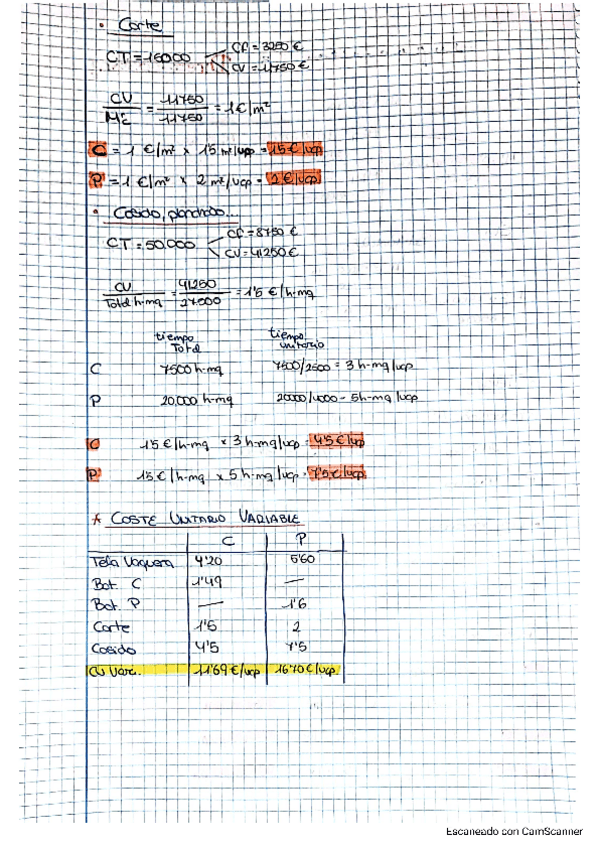 • Corte
CT = 15000 CF = 3250 €
CV = 11750 €
CU / M2 = 11750 / 11750 = 1 €/m²
C = 1 €/m² x 1'5 m²/ucp = 1'5 €/ucp
P = 1 €/m² x 2 m²/ucp = 2 €/ucp
• Cosido, planchado...
CT = 50.000 CF = 8750 €
CV = 41250 €
CU / Total h-mq = 41250 / 27500 = 1'5 €/h-mq
tiempo Total tiempo unitario
C 7500 h-mq 7500/2500 = 3 h-mq/ucp
P 20.000 h-mq 20000/4000 = 5 h-mq/ucp
C 1'5 €/h-mq x 3 h-mq/ucp = 4'5 €/ucp
P 1'5 €/h-mq x 5 h-mq/ucp = 7'5 €/ucp
* COSTE UNITARIO VARIABLE
C P
Tela Vaquera 4'20 5'60
Bot. C 1'49 —
Bot. P — 1'6
Corte 1'5 2
Cosido 4'5 7'5
CU Var. 11'69 €/ucp 16'70 €/ucp
Escaneado con CamScanner